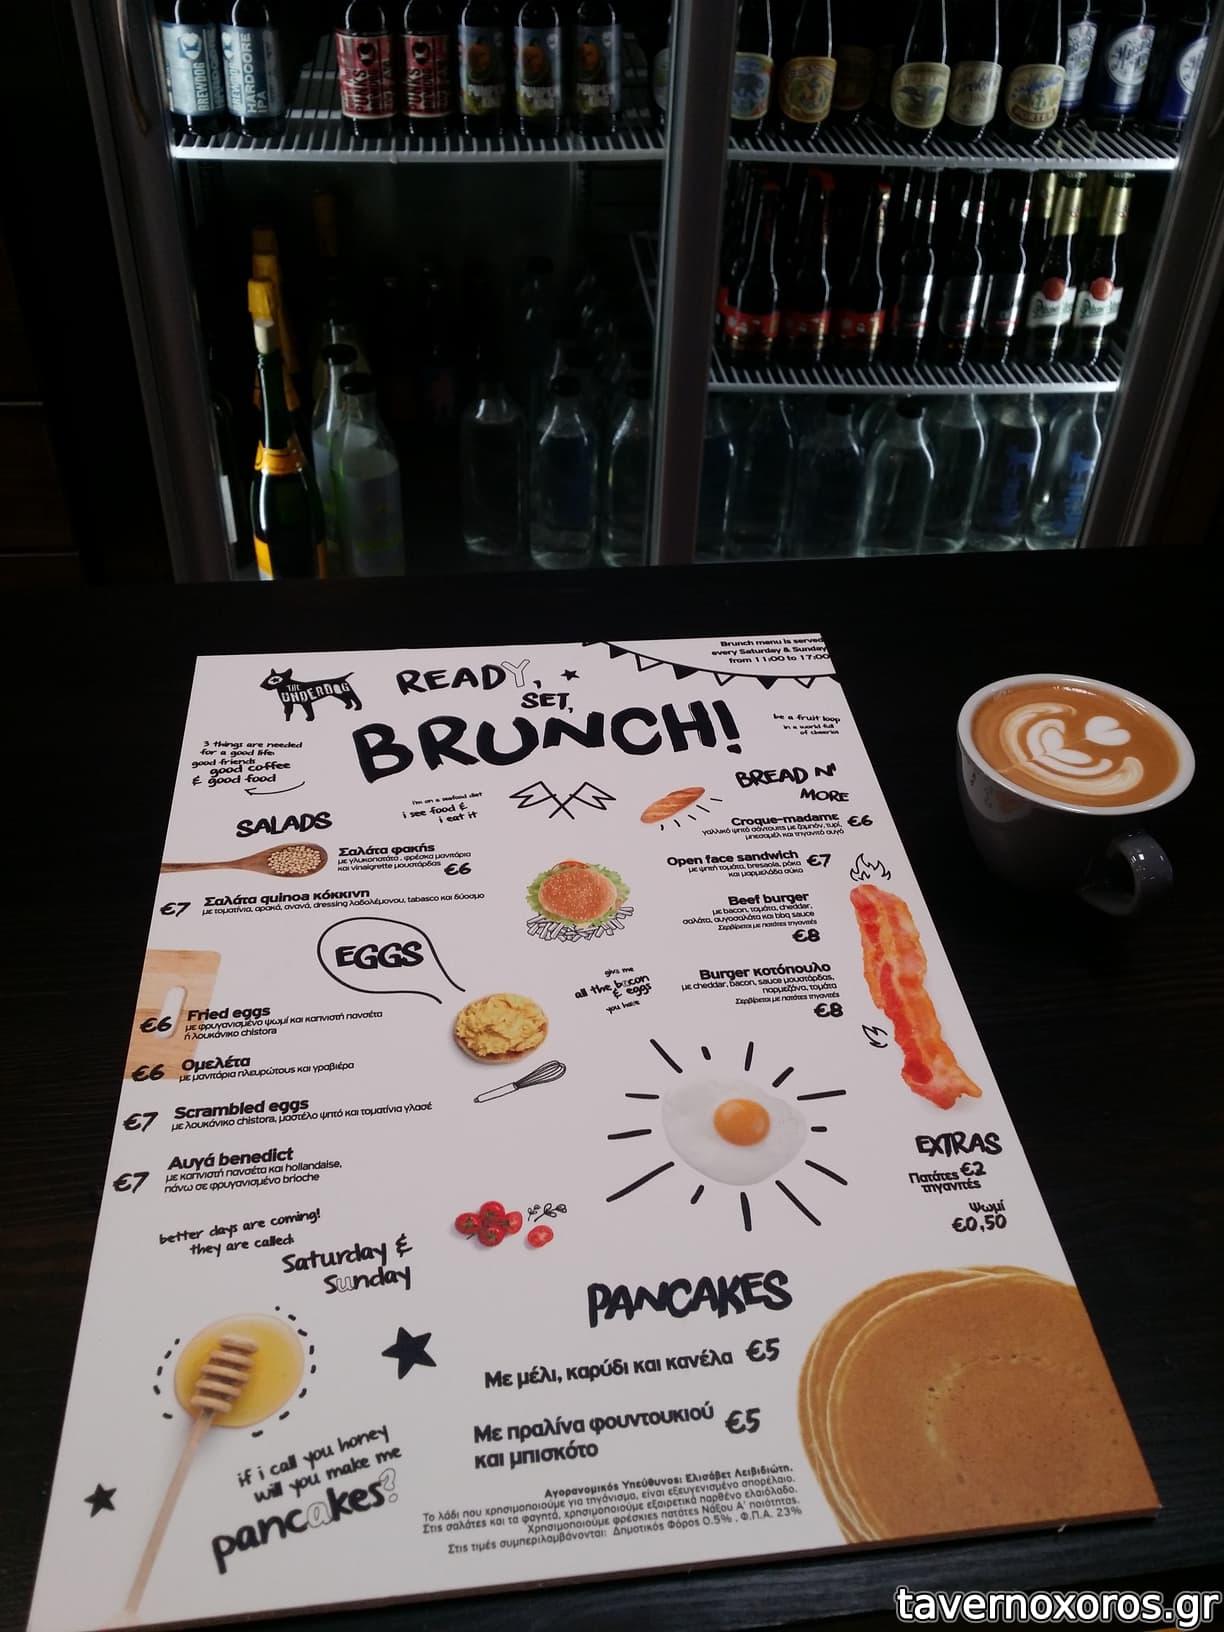 BREWDOG
HARDCORE
IPA
PUNKS
PUMPKIN
Brunch menu is served
every Saturday & Sunday
from 11:00 to 17:00
THE
UNDERDOG
READY,
SET,
BRUNCH!
be a fruit loop
in a world full
of cheerios
3 things are needed
for a good life:
good friends
good coffee
& good food
i'm on a seafood diet
i see food &
i eat it
SALADS
Σαλάτα φακής
με γλυκοπατάτα, φρέσκα μανιτάρια
και vinaigrette μουστάρδας
€6
€7 Σαλάτα quinoa κόκκινη
με τοματίνια, αρακά, ανανά, dressing λαδολέμονου, tabasco και δυόσμο
EGGS
€6 Fried eggs
με φρυγανισμένο ψωμί και καπνιστή πανσέτα
ή λουκάνικο chistora
€6 Ομελέτα
με μανιτάρια πλευρώτους και γραβιέρα
€7 Scrambled eggs
με λουκάνικο chistora, μαστέλο ψητό και τοματίνια γλασέ
€7 Αυγά benedict
με καπνιστή πανσέτα και hollandaise,
πάνω σε φρυγανισμένο brioche
BREAD N'
MORE
Croque-madame €6
γαλλικό ψητό σάντουιτς με ζαμπόν, τυρί,
μπεσαμέλ και τηγανιτό αυγό
Open face sandwich €7
με ψητή τομάτα, bresaola, ρόκα
και μαρμελάδα σύκο
Beef burger
με bacon, τομάτα, cheddar,
σαλάτα, αυγοσαλάτα και bbq sauce
Σερβίρεται με πατάτες τηγανιτές
€8
give me
all the bacon
& eggs
you have
Burger κοτόπουλο
με cheddar, bacon, sauce μουστάρδας,
παρμεζάνα, τομάτα
Σερβίρεται με πατάτες τηγανιτές
€8
EXTRAS
Πατάτες €2
τηγανιτές
Ψωμί
€0,50
better days are coming!
they are called:
Saturday &
Sunday
PANCAKES
Με μέλι, καρύδι και κανέλα €5
Με πραλίνα φουντουκιού €5
και μπισκότο
if i call you honey
will you make me
pancakes?
Αγορανομικός Υπεύθυνος: Ελισάβετ Λειβιδιώτη.
Το λάδι που χρησιμοποιούμε για τηγάνισμα, είναι εξευγενισμένο σπορέλαιο.
Στις σαλάτες και τα φαγητά, χρησιμοποιούμε εξαιρετικά παρθένο ελαιόλαδο.
Χρησιμοποιούμε φρέσκιες πατάτες Νάξου Α' ποιότητας.
Στις τιμές συμπεριλαμβάνονται: Δημοτικός Φόρος 0.5% , Φ.Π.Α. 23%
tavernoxoros.gr